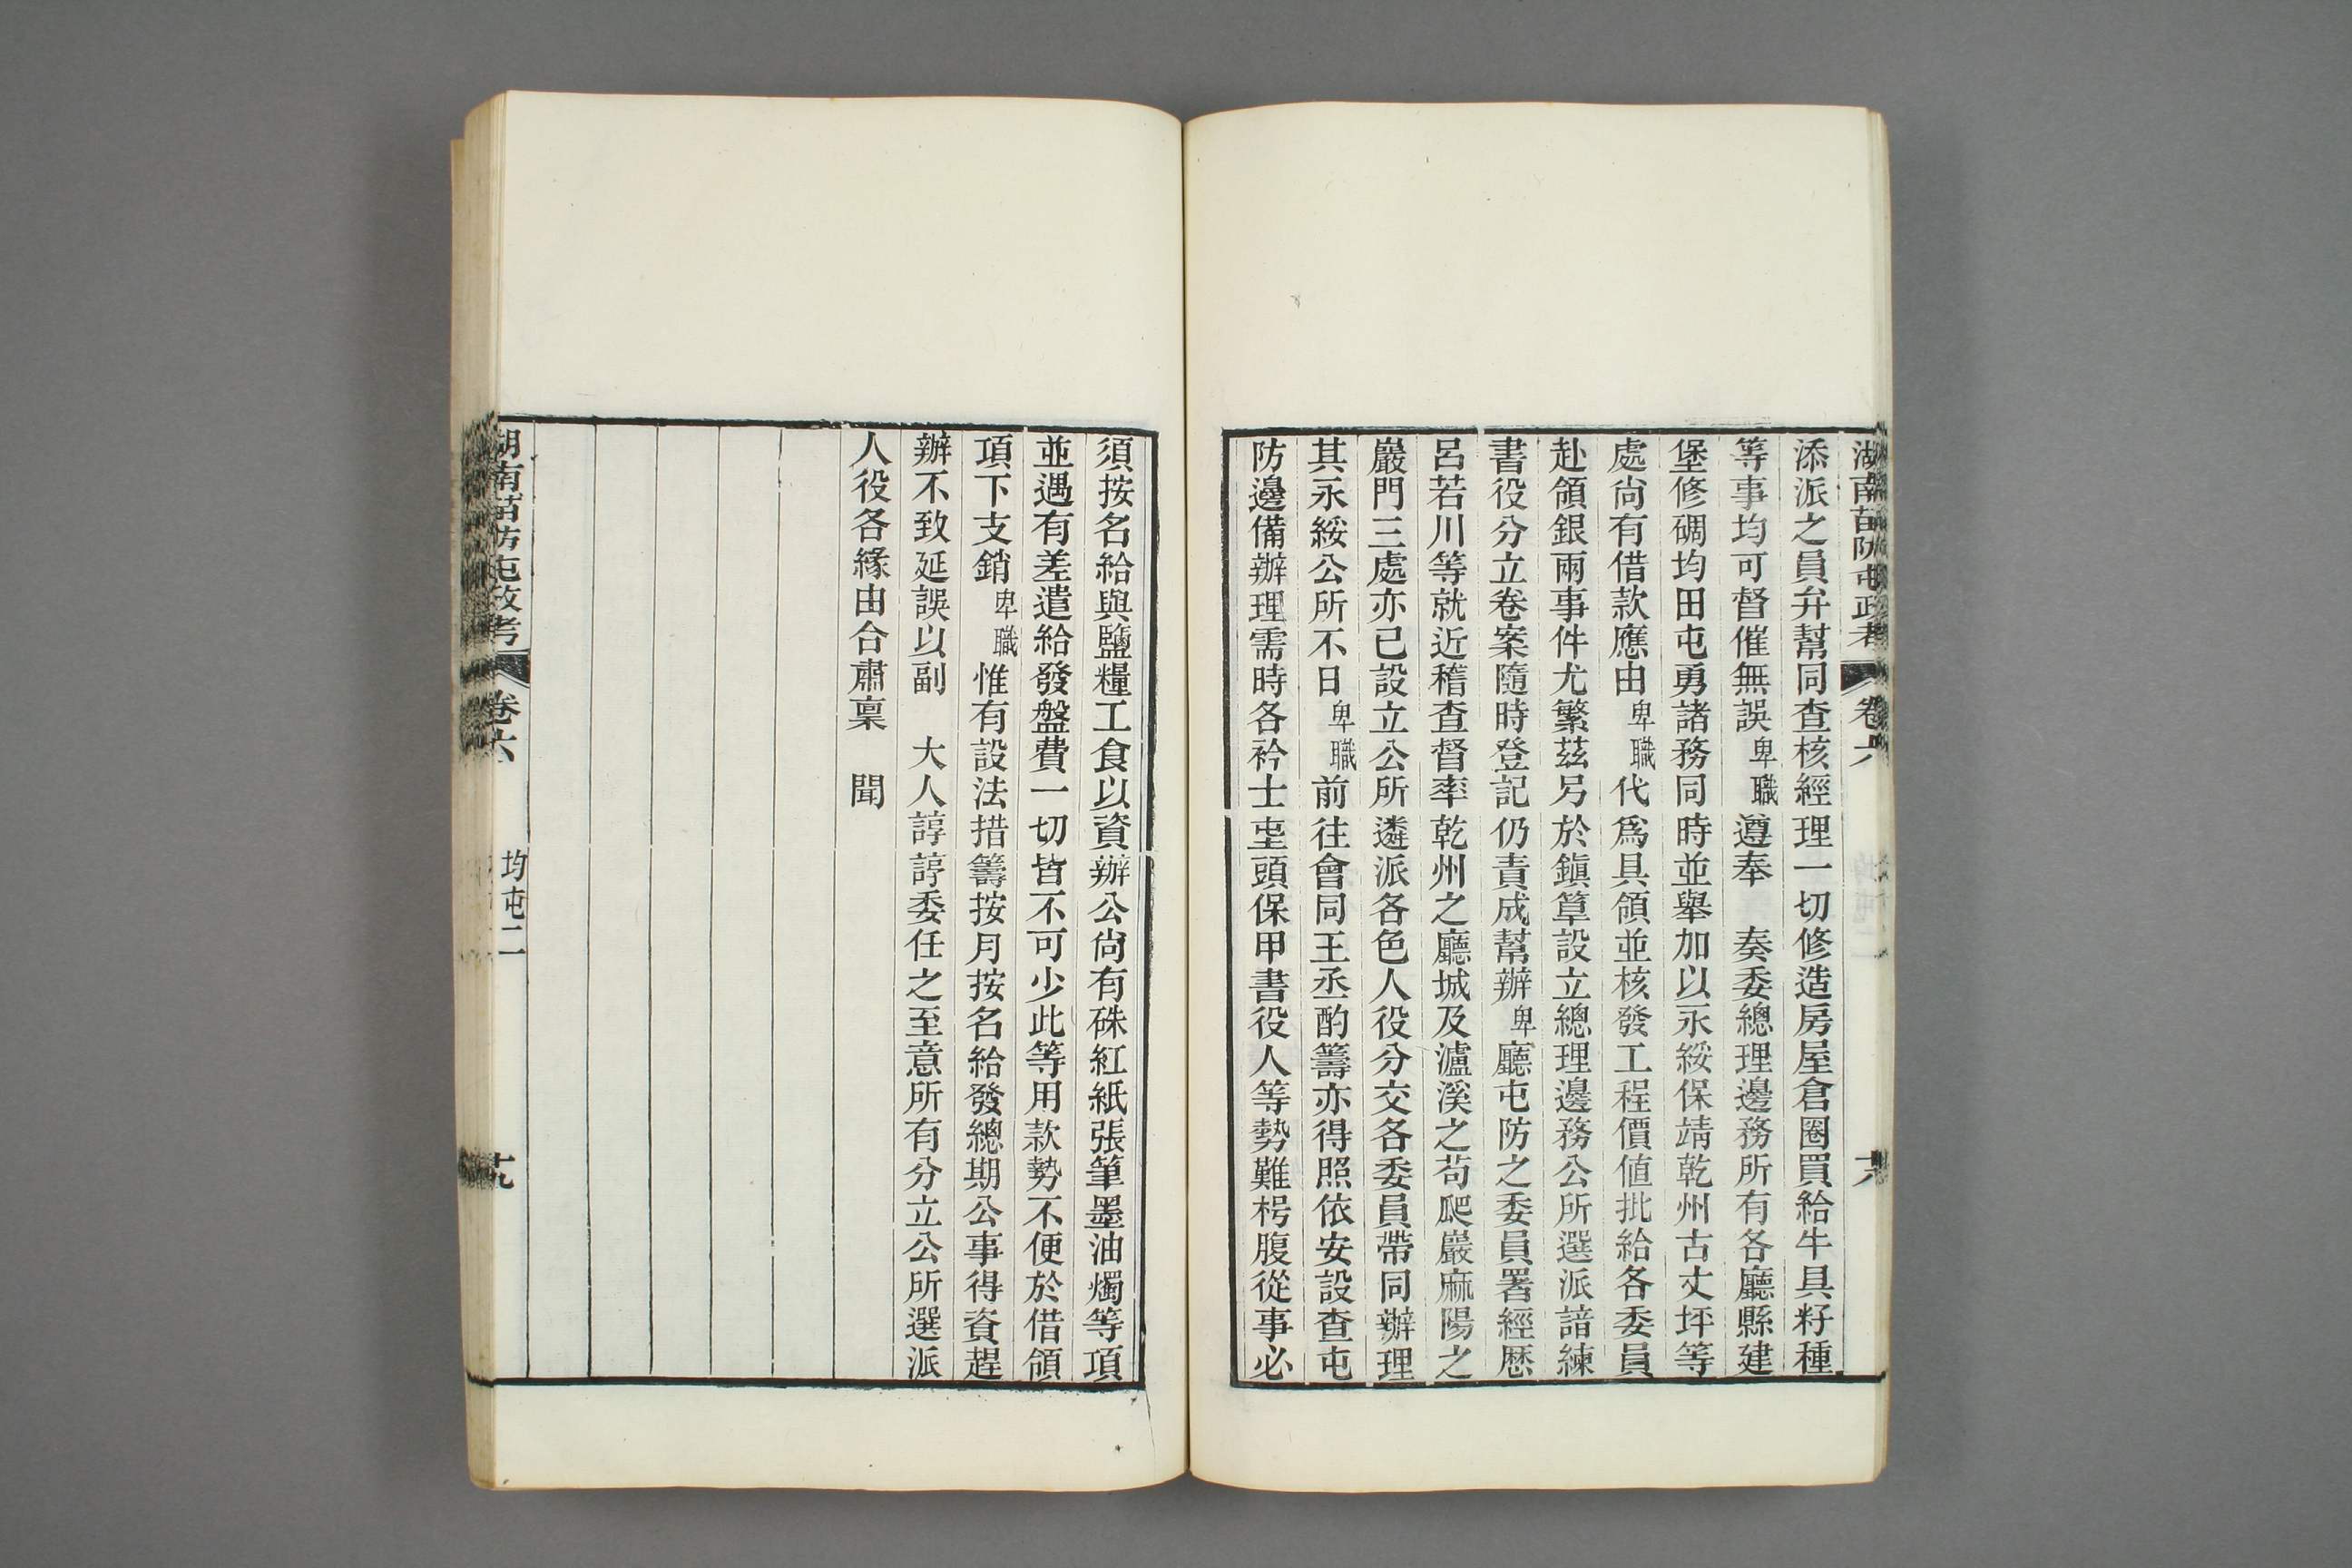 湖南苗防屯政考 卷六
添派之員弁幫同查核經理一切修造房屋倉圈買給牛具籽種
等事均可督催無誤卑職遵奉 奏委總理邊務所有各廳縣建
堡修碉均田屯勇諸務同時並舉加以永綏保靖乾州古丈坪等
處尚有借款應由卑職代爲具領並核發工程價值批給各委員
赴領銀兩事件尤繁茲另於鎮筸設立總理邊務公所選派諳練
書役分立卷案隨時登記仍責成幫辦卑廳屯防之委員署經歷
呂若川等就近稽查督率乾州之廳城及瀘溪之茍爬巖麻陽之
巖門三處亦已設立公所遴派各色人役分交各委員帶同辦理
其永綏公所不日卑職前往會同王丞酌籌亦得照依安設查屯
防邊備辦理需時各衿士屯頭保甲書役人等勢難枵腹從事必
須按名給與鹽糧工食以資辦公尚有硃紅紙張筆墨油燭等項
並遇有差遣給發盤費一切皆不可少此等用款勢不便於借領
項下支銷卑職惟有設法措籌按月按名給發總期公事得資趕
辦不致延誤以副 大人諄諄委任之至意所有分立公所選派
人役各緣由合肅稟 聞
湖南苗防屯政考 卷六 均屯二